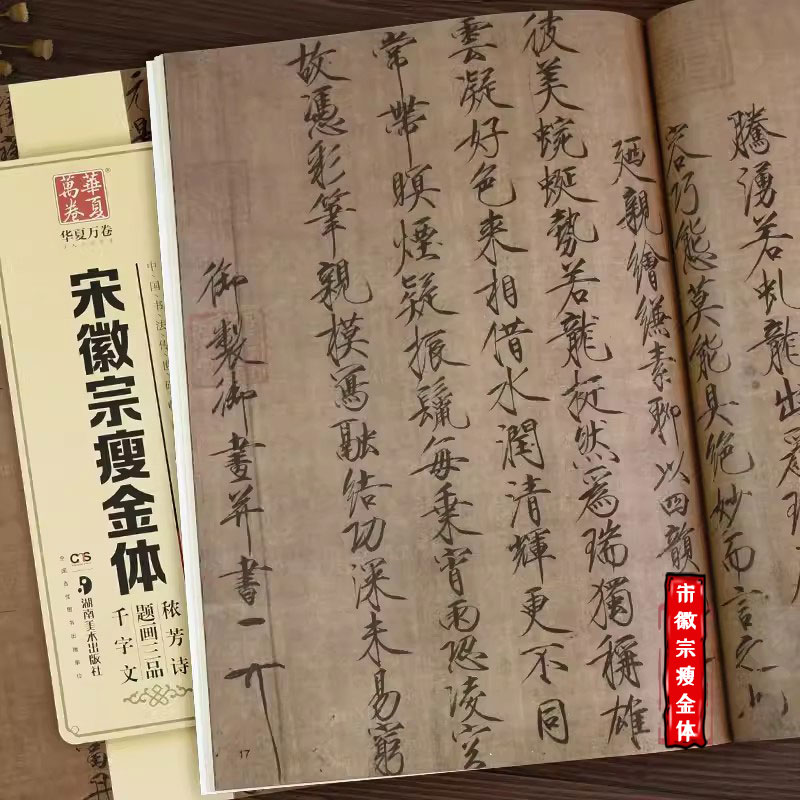 騰湧若虬龍出爲瑞
容巧態莫能具絕妙而言之也
廼親繪縑素聊以四韻
彼美蜿蜒勢若龍挺然爲瑞獨稱雄
雲凝好色來相借水潤清輝更不同
常帶暝煙疑振鬣每乘宵雨恐凌空
故憑彩筆親模寫融結功深未易窮
御製御畫并書
17
華夏萬卷
华夏万卷
中国书法传世碑
宋徽宗瘦金体
秾芳诗
题画三品
千字文
湖南美术出版社
市徽宗瘦金体